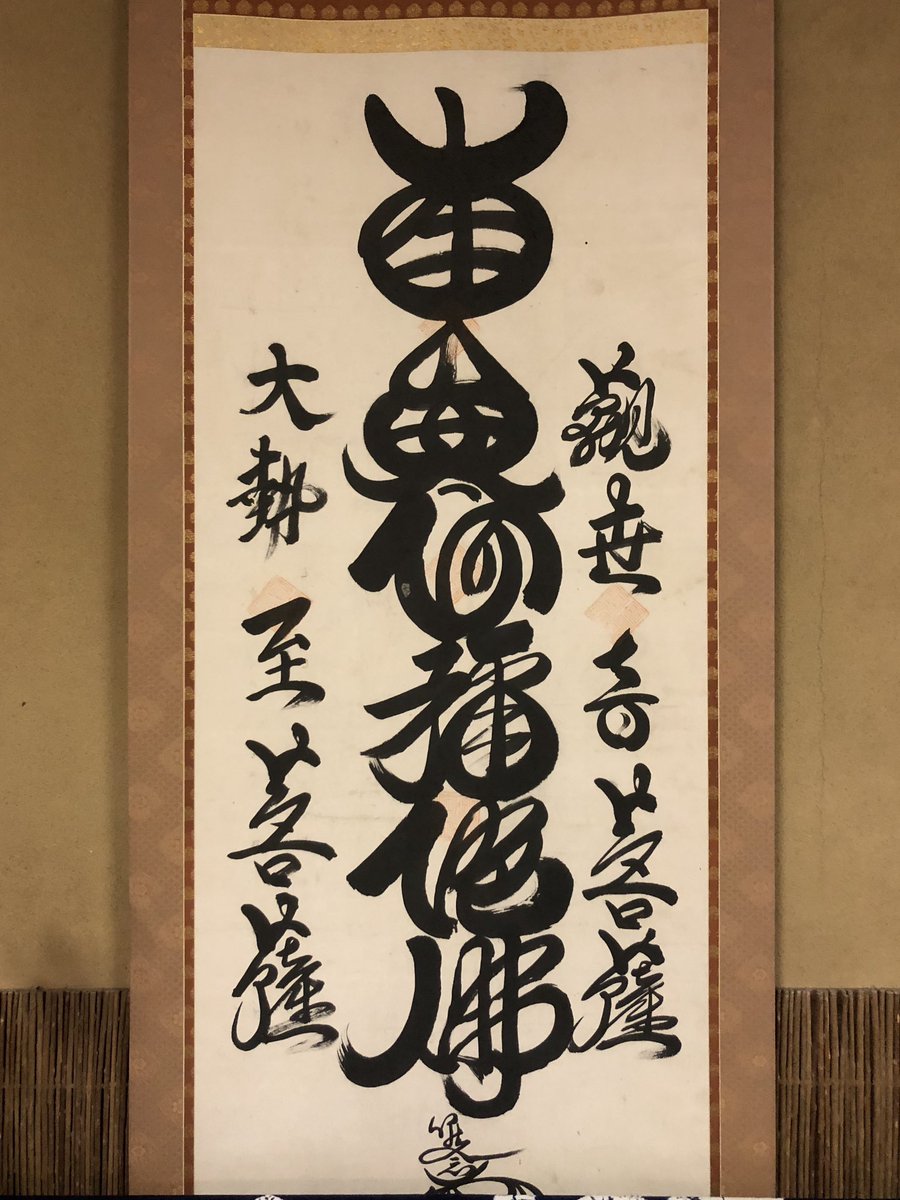 觀世音菩薩
南無阿彌陀佛
大勢至菩薩